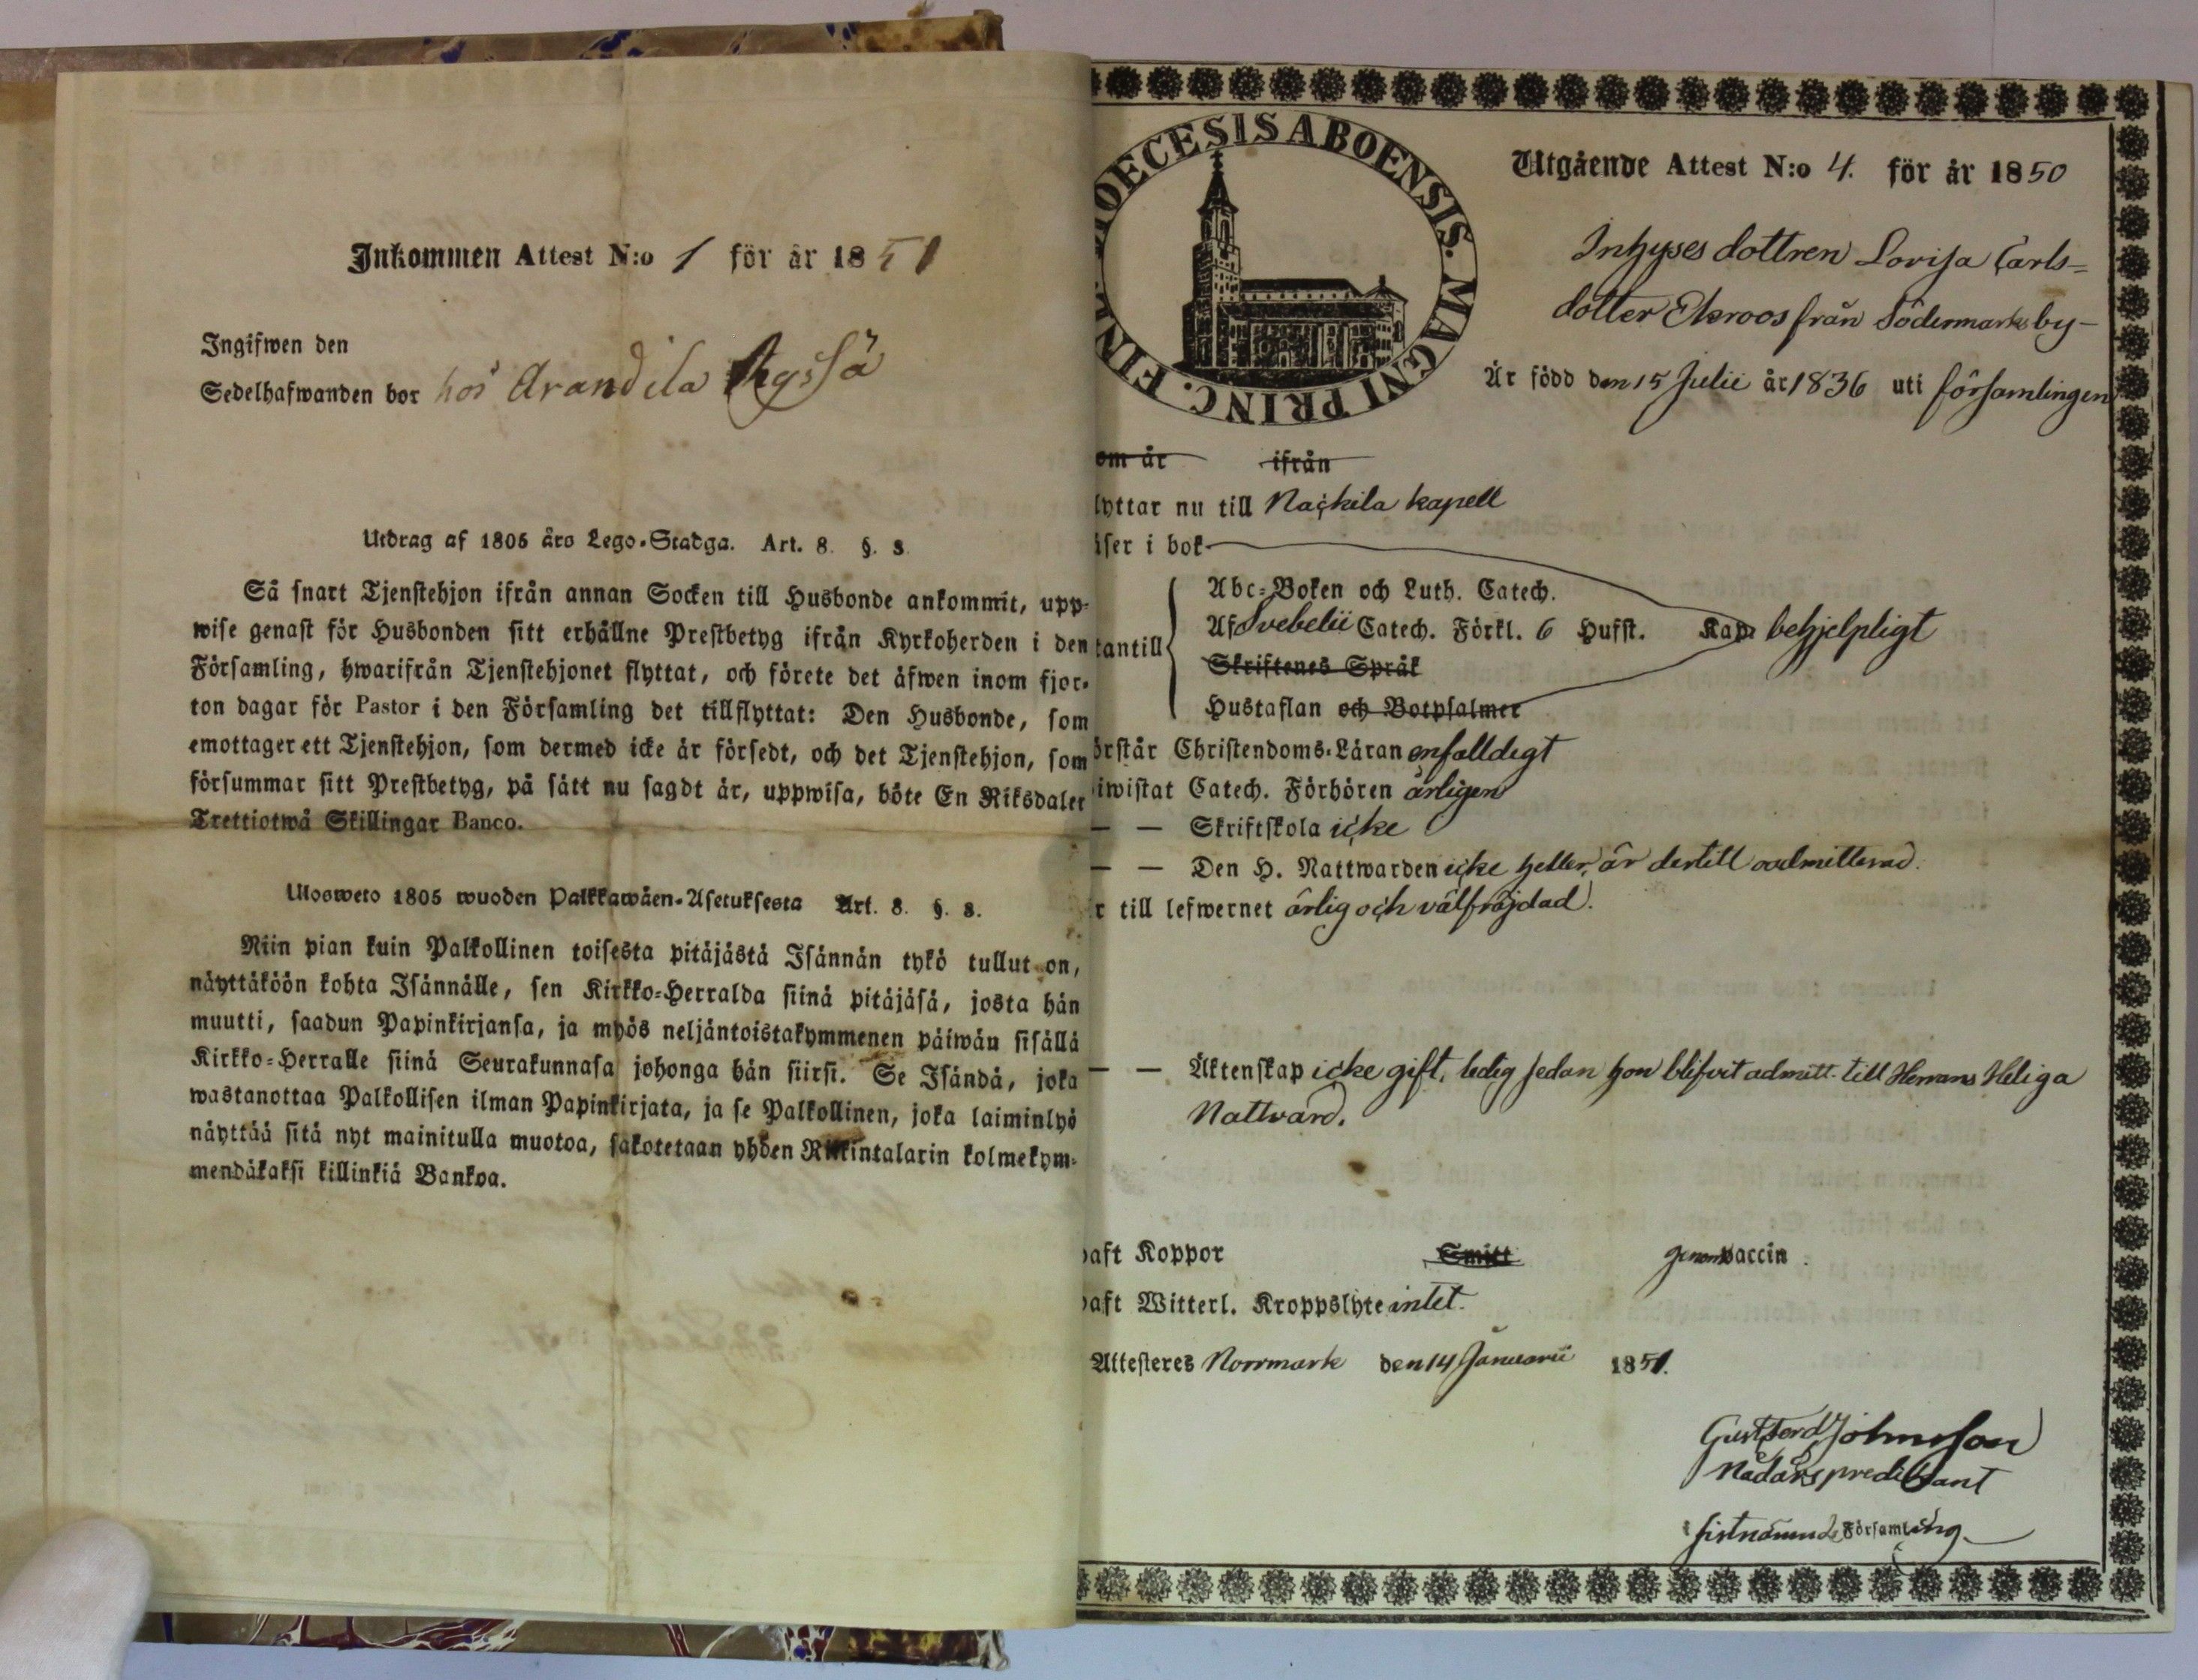 Inkommen Attest N:o 1 för år 1851
Ingifwen den
Sedelhafwanden bor hos Arandila
Utdrag af 1805 års Lego-Stadga. Art. 8. §. 8.
Så snart Tjenstehjon ifrån annan Socken till Husbonde ankommit, upp-
wise genast för Husbonden sitt erhållne Prestbetyg ifrån Kyrkoherden i den
Församling, hwarifrån Tjenstehjonet flyttat, och förete det äfwen inom fjor-
ton dagar för Pastor i den Församling det tillflyttat: Den Husbonde, som
emottager ett Tjenstehjon, som dermed icke är försedt, och det Tjenstehjon, som
försummar sitt Prestbetyg, på sätt nu sagdt är, uppwisa, böte En Riksdaler
Trettiotwå Skillingar Banco.
Ulosweto 1805 wuoden Palkkawäen-Asetuksesta Art. 8. §. 8.
Niin pian kuin Palkollinen toisesta pitäjästä Isännän tykö tullut on,
näyttäköön kohta Isännälle, sen Kirkko-Herralda siinä pitäjäsä, josta hän
muutti, saadun Papinkirjansa, ja myös neljäntoistakymmenen päiwän sisällä
Kirkko-Herralle siinä Seurakunnasa johonga hän siirsi. Se Isändä, joka
wastanottaa Palkollisen ilman Papinkirjata, ja se Palkollinen, joka laiminlyö
näyttää sitä nyt mainitulla muotoa, sakotetaan yhden Riikintalarin kolmekym-
mendäkaksi killinkiä Bankoa.
DIOECESIS ABOENSIS. MAGNI PRINC. FINL.
Utgående Attest N:o 4. för år 1850
Inhyses dottren Lovisa Carls=
dotter Ekroos från Södermarks by-
Är född den 15 Julii år 1836 uti församlingen
om år ifrån
lyttar nu till Nackila kapell
äser i bok
tantill
Abc-Boken och Luth. Catech.
Af Svebelii Catech. Förkl. 6 Hufst. Kap. behjelpligt
Skriftenes Språk
Hustaflan och Botpsalmer
örstår Christendoms-Läran enfalldigt
iwistat Catech. Förhören årligen
— — Skriftskola icke
— — Den H. Nattwarden icke heller, är dertill oadmitterad.
r till lefwernet ärlig och välfräjdad.
— — Äktenskap icke gift, ledig sedan hon blifvit admitt. till Herrans Heliga
Nattvard.
aft Koppor Smitt genom vaccin.
aft Witterl. Kroppslyte intet.
Attesteres Norrmark den 14 Januarii 1851.
Gust Ferd Johnsson
Nådårs predikant
i sistnämnde Församling